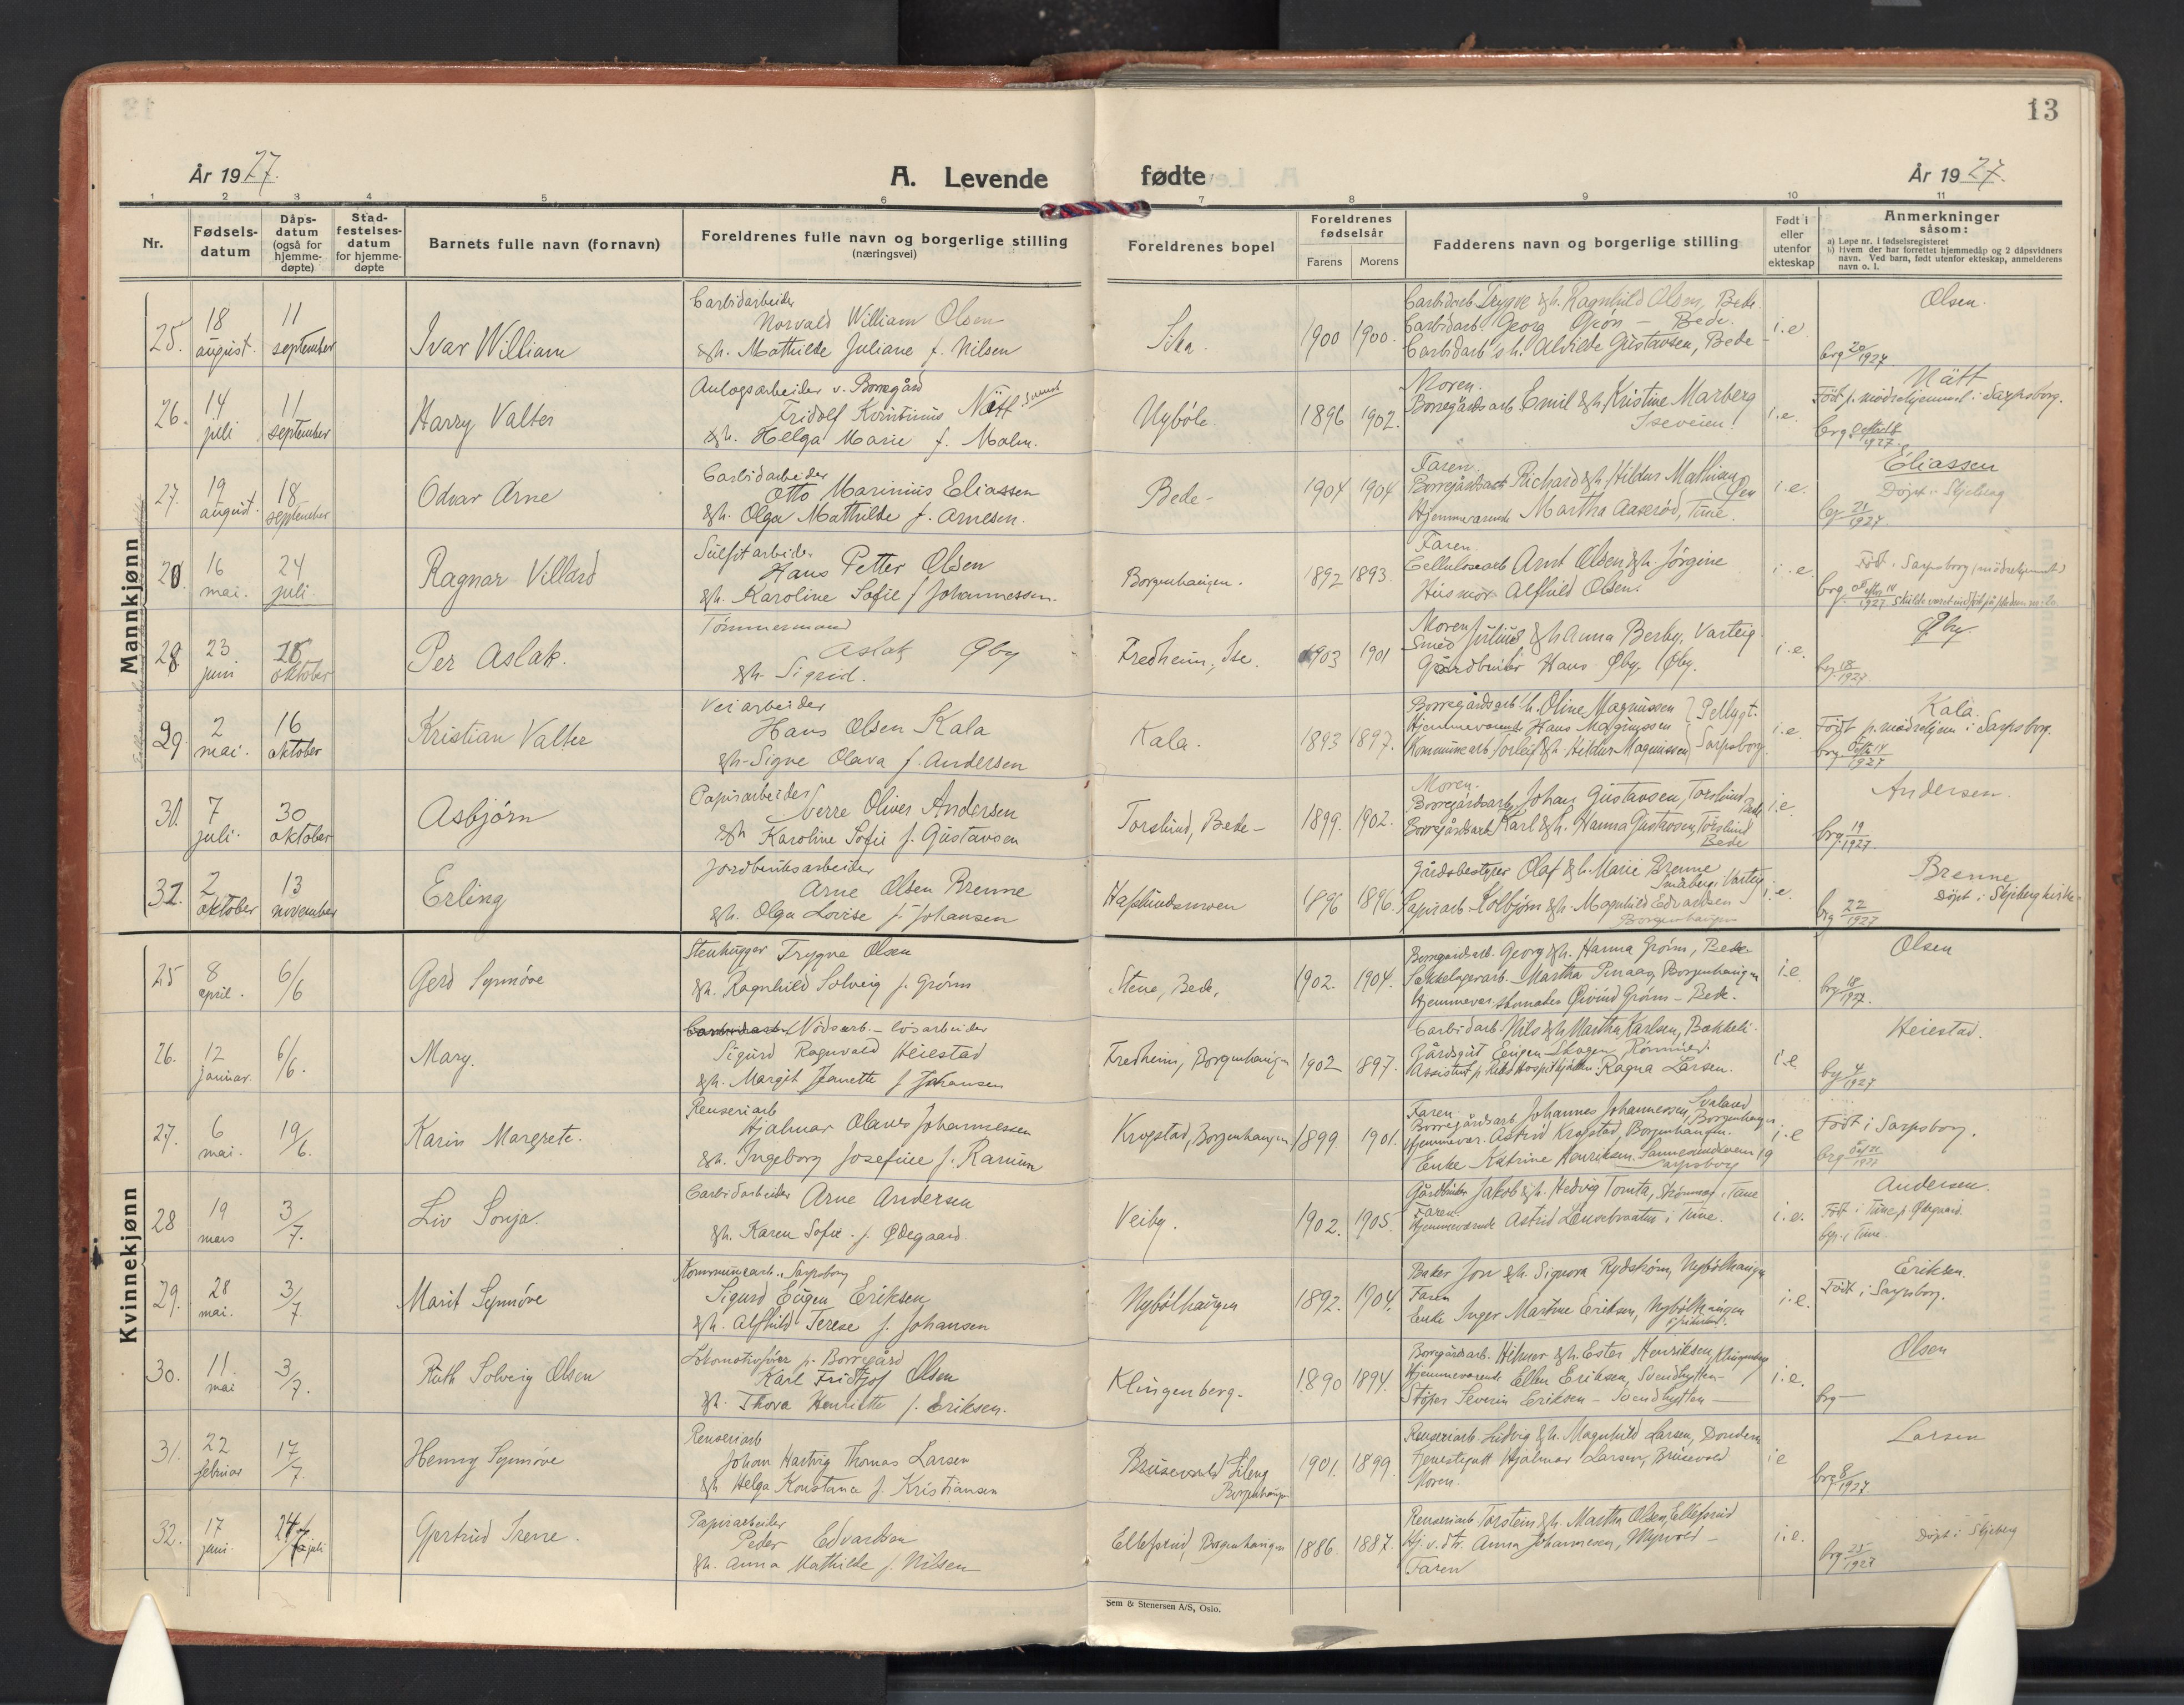 13
År 1927.
A. Levende
fødte
År 1927.
1 2 3 4 5 6 7 8 9 10 11
Nr.
Fødsels-
datum
Dåps-
datum
(også for
hjemme-
døpte)
Stad-
festelses-
datum
for hjemme-
døpte
Barnets fulle navn (fornavn)
Foreldrenes fulle navn og borgerlige stilling
(næringsvei)
Foreldrenes bopel
Foreldrenes
fødselsår
Farens
Morens
Fadderens navn og borgerlige stilling
Født i
eller
utenfor
ekteskap
Anmerkninger
såsom:
a) Løpe nr. i fødselsregisteret
b) Hvem der har forrettet hjemmedåp og 2 dåpsvidners
navn. Ved barn, født utenfor ekteskap, anmelderens
navn o. l.
Mannkjønn
25. 18 august. 11 september Ivar William
Carbidarbeider
Norvald William Olsen
&h. Mathilde Juliane f. Nilsen
1900 1900.
Carbidarb. Trygve &h. Ragnhild Olsen, Bede.
Carbidarb. Georg Grøn - Bede.
Carbidarb's h. Alvilde Gustavsen, Bede
i.e.
Olsen.
brg 20/1927
26. 14 juli 11 september Harry Valter
Anlogsarbeider v. Borregård
Fridolf Kristinius Nätt
&h. Helga Marie f. Malm.
Nybøle. 1896 1902.
Moren.
Borregårdsarb Emil &h. Kristine Marberg
Iseveien
i.e.
Nätt
Født p. mødrehjemmet i Sarpsborg.
27. 19 august. 18 september Odvar Arne
Carbidarbeider
Otto Marinius Eliassen
&h. Olga Mathilde f. Arnesen.
Bede - 1904 1904
Faren.
Borregårdsarb Richard &h. Hildur Mathisen
Hjemmeværende Martha Aaserød, Tune.
i.e.
Eliassen
Døpt i Skjeberg
brg 21/1927
16 mai. 24 juli Ragnar Villard
Sulfitarbeider
Hans Petter Olsen
&h. Karoline Sofie f Johannessen.
Borgenhaugen. 1892 1893.
Faren.
Cellulosearb Arnt Olsen &h. Jørgine
Husmor Alfhild Olsen.
i.e.
Født i Sarpsborg (mødrehjemmet)
28. 23 juni oktober Per Aslak.
Tømmermand
Aslak Øby
&h. Sigrid.
Fredheim, Ise. 1903 1901
Moren
Smed Julius &h Anna Berby, Varteig.
Gårdbruker Hans Øby, Øby.
i.e.
Øby.
brg 18/1927.
29. 2 mai. 16 oktober Kristian Valter
Veiarbeider
Hans Olsen Kala
&h. Signe Olava f. Andersen
Kala. 1893 1897.
Borregårdsarb. h. Oline Magnussen
Hjemmeværende Hans Magnussen
Kommunearb Torleif &h Hildur Magnussen Sarpsborg.
i.e.
Kala.
Født p. mødrehjem i Sarpsborg.
7 juli. 30 oktober Asbjørn
Papirarbeider
Sverre Oliver Andersen
&h Karoline Sofie f. Gustavsen
Torslund, Bede - 1899. 1902.
Moren.
Borregårdsarb Johan Gustavsen, Torslund, Bede
Borregårdsarb Karl &h. Hanna Gustavsen, Torslund
Bede
i.e.
Andersen.
brg. 19/1927.
2 oktober 13 november Erling
Jordbruksarbeider
Arne Olsen Brenne
&h. Olga Lovise f. Johansen
Hafslundsmoen 1896 1896.
Gårdsbestyrer Olaf &h. Marie Brenne
Småberg i Varteig
Papirarb - Kolbjørn &h. Magnhild Edvardsen
Borgenhaugen
i.e.
Brenne
Døpt i Skjeberg kirke.
brg 22/1927
Kvinnekjønn
25 8 april. 6/6 Gerd Synnøve
Stenhugger Trygve Olsen
&h. Ragnhild Solveig f. Grønn
Stene, Bede, 1902. 1904.
Borregaardsarb. Georg &h. Hanna Grønn, Bede
Sekkelagerarb. Martha Borgenhaugen
Hjemmevær. Øivind Grønn - Bede.
i.e.
Olsen
brg 18/1927.
26. 12 januar. 6/6. Mary.
Nødsarb. - løsarbeider
Sigurd Ragnvald Heiestad
&h. Margit Jeanette f Johansen
Fredheim, Borgenhaugen 1902 1897.
Carbidarb. Nils &h Martha Karlsen, Bakkeli.
Gårdsgut Eugen Skogen
Ragna Larsen.
i.e
Heiestad.
brg 4/1927
27. 6 mai. 19/6. Karin Margrete.
Renseriarb
Hjalmar Olaus Johannessen
&h. Ingeborg Josefine f. Ramm
Krogstad, Borgenhaugen 1899 1901.
Faren.
Borregårdsarb Johannes Johannessen, Borgenhaugen
Hjemmevær. Astrid Krogstad, Borgenhaugen.
Enke Katrine Henriksen. 19
Sarpsborg
i.e
Født i Sarpsborg.
28 19 mars 3/7. Liv Sonja.
Carbidarbeider Arne Andersen
&h. Karen Sofie. f. Ødegaard.
Veiby. 1902. 1905.
Gårdbruker Jakob &h. Hedvig Tomta, i Tune
Faren.
Hjemmeværende Astrid i Tune.
i.e.
Andersen.
Født i Tune p Ødegaard.
brg. i Tune.
29. 28 mai. 3/7. Marit Synnøve
Kommunearb. i Sarpsborg
Sigurd Eugen Eriksen
&h. Alfhild Terese f. Johansen
Nybølhaugen 1892. 1904.
Baker Jon &h. Signora Rydstrøm, Nybølhaugen
Faren
Enke Inger Martine Eriksen, Nybølhaugen
i.e.
Eriksen.
Født i Sarpsborg.
30. 11. mai 3/7. Ruth Solveig Olsen
Lokomotivfører p. Borregård
Karl Fridtjof Olsen
&h. Thora Henriette f. Eriksen.
Klingenberg. 1890 1894.
Borregårdsarb. Hilmer &h. Ester Henriksen, Klingenberg
Hjemmeværende Ellen Eriksen, Svendhytten -
Støper Severin Eriksen - Svendhytten -
i.e.
Olsen
brg -
31. 22 februar 17/7. Henny Synnøve
Renseriarb
Johan Hartvig Thomas Larsen
&h Helga Konstance f. Kristiansen
Brusevold Lileng
Borgenhaugen
1901. 1899.
Renseriarb. Ludvig &h. Magnhild Larsen, Dondern
Tjenestegutt Hjalmar Larsen, Brusevold.
Moren.
i e
Larsen
brg 8/1927.
32. 17 juni. juli Gjertrud Irene.
Papirarbeider
Peder Edvardsen
&h. Anna Mathilde f. Nilsen
Ellefsrud, Borgenhaugen 1886. 1887.
Renseriarb. Torstein &h. Martha Olsen, Ellefsrud
Hj. v. dtr. Anna Johannesen, Myrvold -
Faren
i.e.
Døpt i Skjeberg
brg 25/1927
Sem & Stenersen A/S, Oslo.